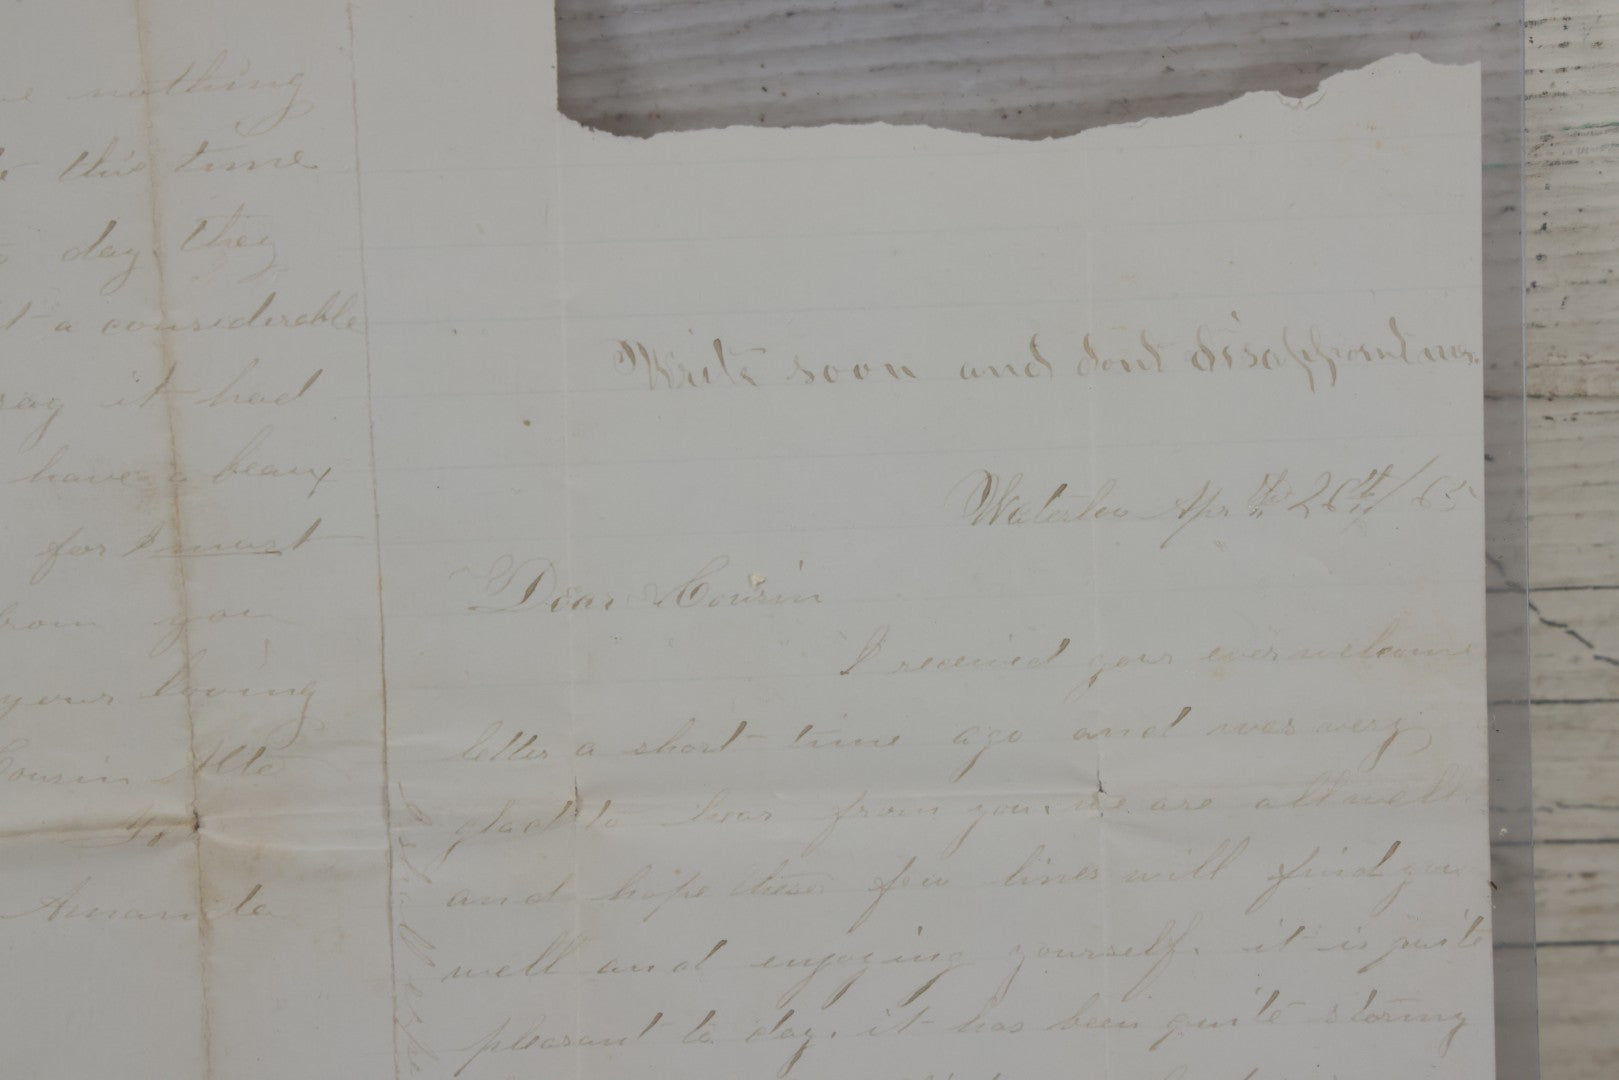 nothing
this time
day they
a considerable
it had
have a beaux
for I must
from you
your loving
Cousin Alta
To
Amanda
I shall expe
Write soon and dont disappoint me.
Waterloo Apr 26th/65
Dear Cousin
I received your ever welcome
letter a short time ago and was very
glad to hear from you. we are all well
and hope these few lines will find you
well and enjoying yourself. it is quite
pleasant to day. it has been quite storing